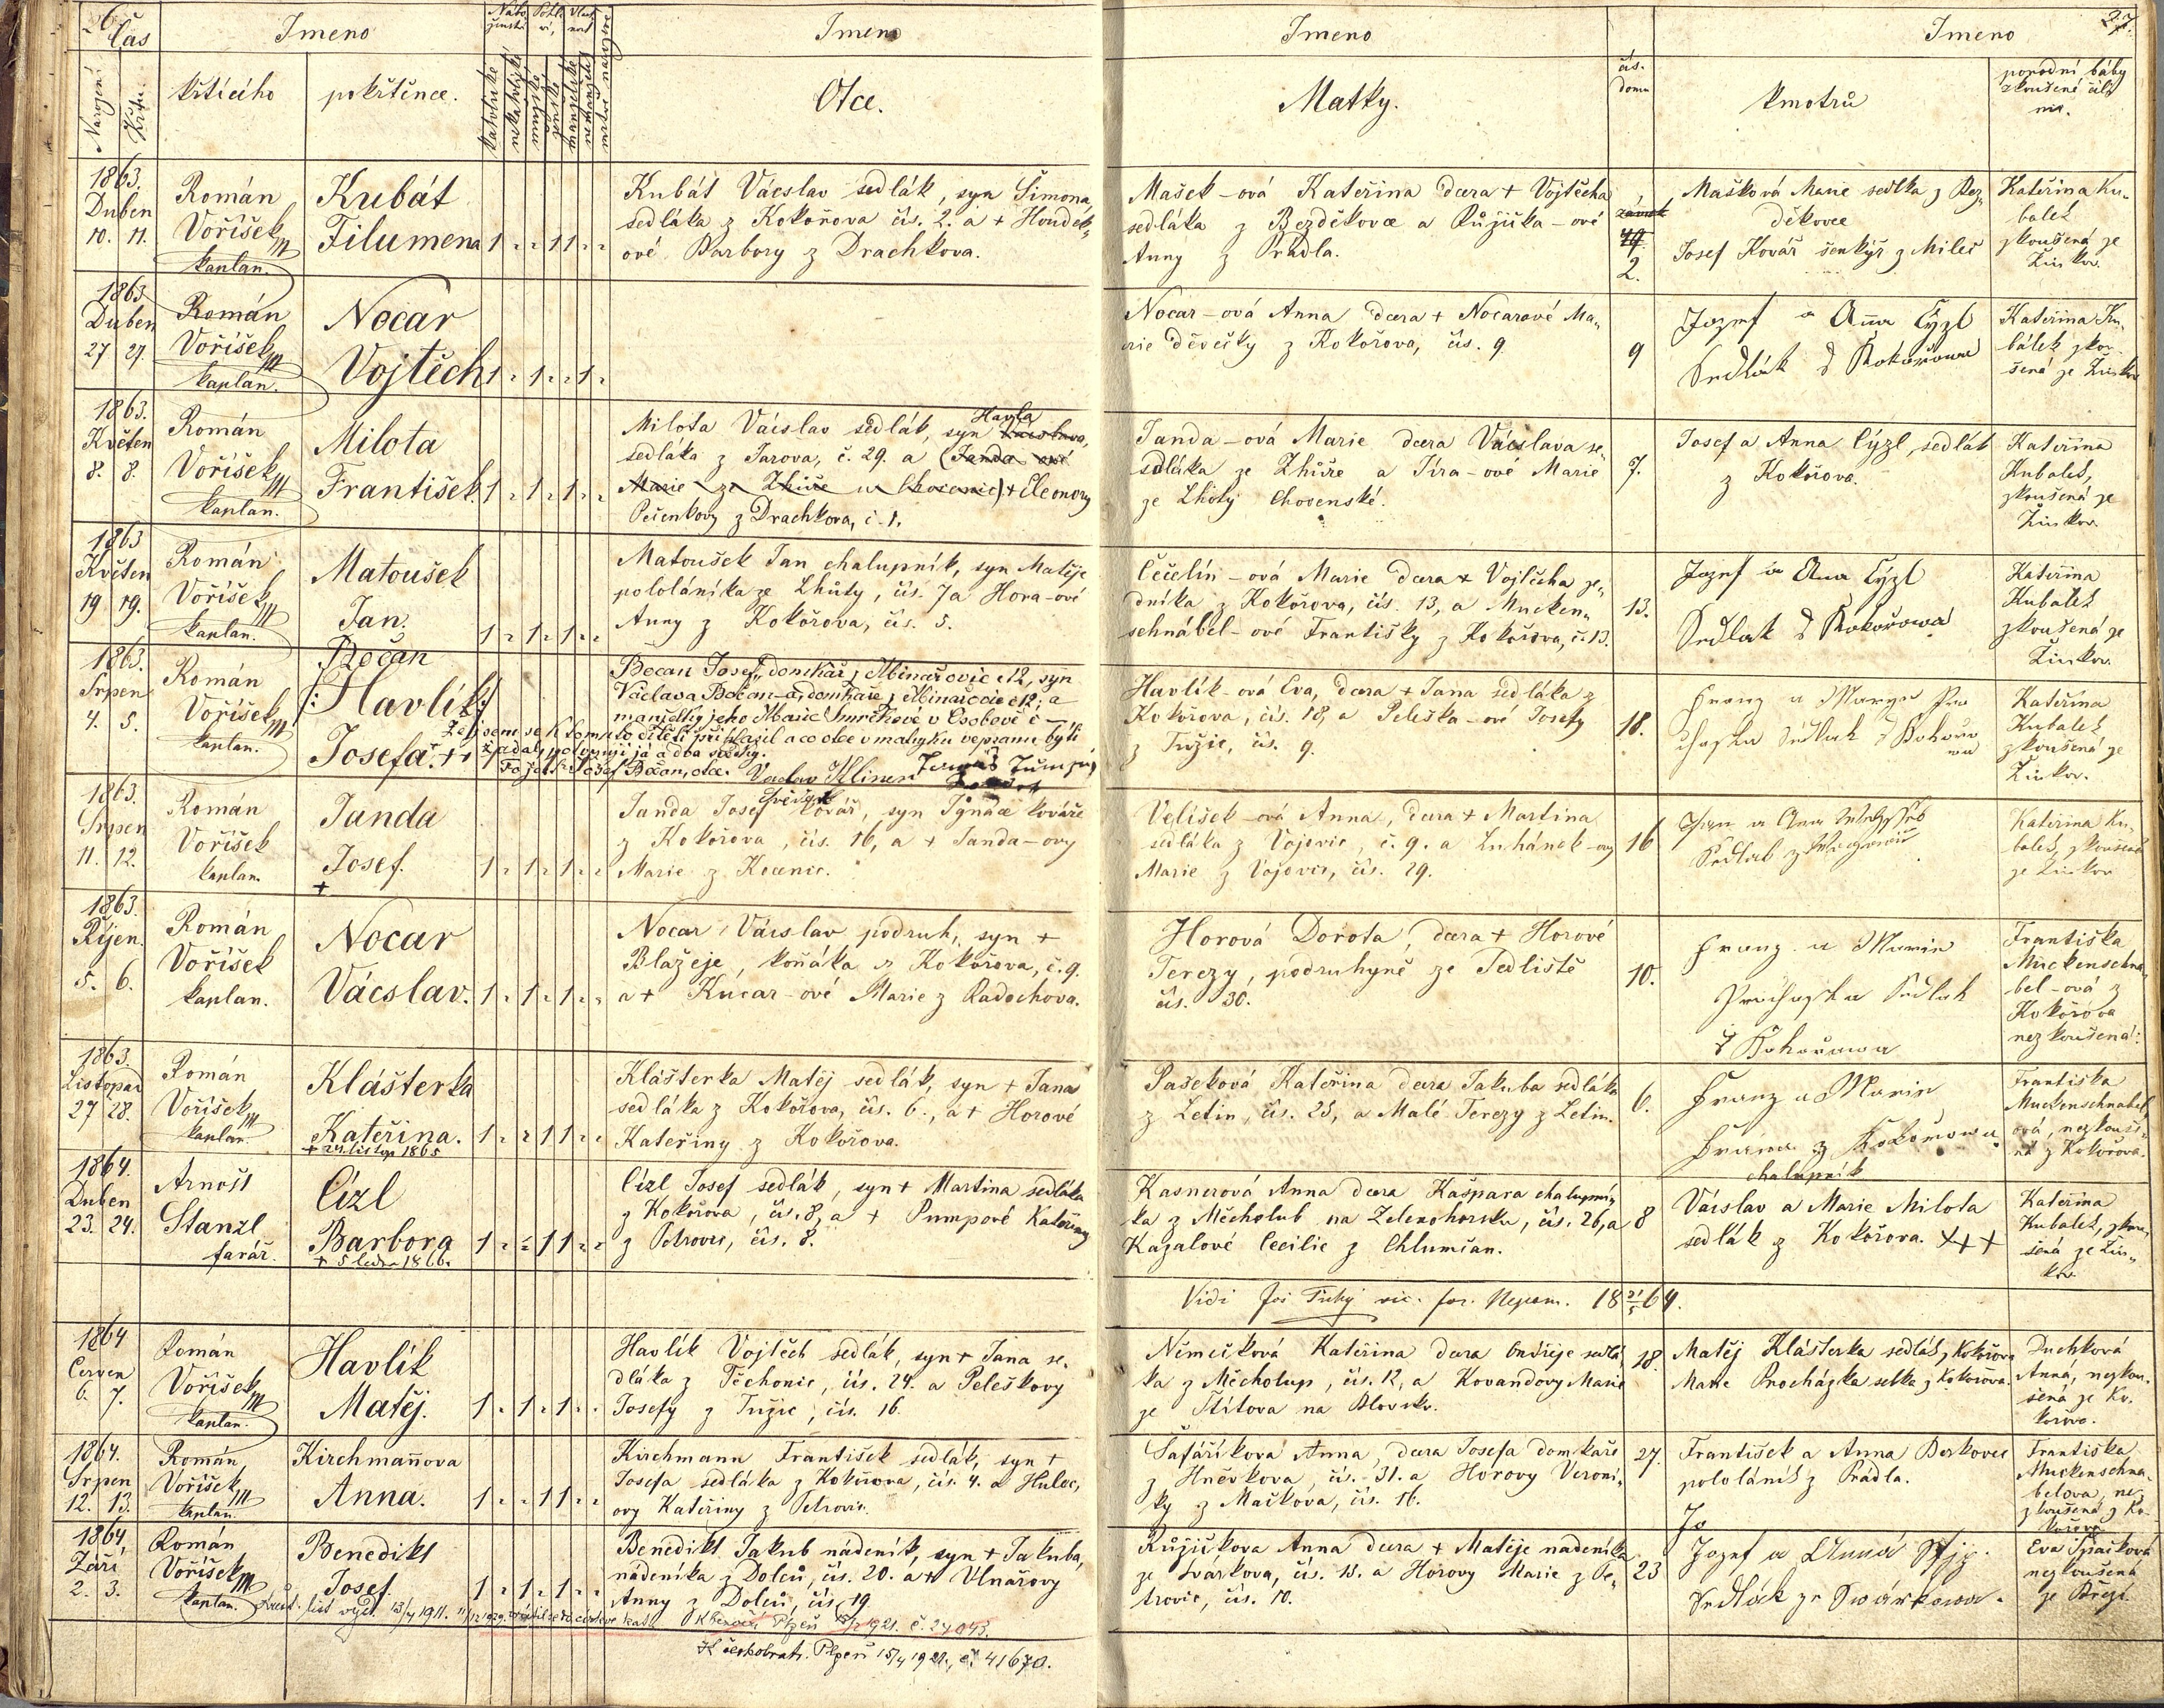 26
27.
Čas
Jmeno
Nábo-
ženství
Pohla-
ví,
Jmeno
Jmeno
čís.
domu
Jmeno
Narození
Křtu.
křtícího
pokřtěnce.
katolické
nekatolické
mužské
ženské
manželské
nemanželské
Otce.
Matky.
kmotrů
porodní báby
zkoušené čili
ne.
1863.
Duben
10. 11.
Román
Voříšek
kaplan.
Kubát
Filumena
1 . . 1 1 . .
Kubát Vácslav sedlák, syn Šimona,
sedláka z Kokořova čís. 2. a + Houdek-
ové Barbory z Drachkova.
Mašek-ová Kateřina dcera + Vojtěcha
sedláka z Bezděkovce a Růžička-ové
Anny z Prádla.
2.
Mašková Marie sedlka z Bez-
děkovce
Josef Kovář šenkýř z Mileč
Kateřina Ku-
balek
zkoušená ze
Žinkov.
1863
Duben
27 27.
Román
Voříšek
kaplan.
Nocar
Vojtěch
1 . 1 . . 1 .
Nocar-ová Anna dcera + Nocarové Ma-
rie děvečky z Kokořova, čís. 9.
9
Jozef a Aña Cýzl
Sedlák z Kokořowa
Kateřina Ku-
bálek zkou-
šená ze Žinkov
1863.
Květen
8. 8.
Román
Voříšek
kaplan.
Milota
František.
1 . 1 . 1 . .
Milota Vácslav sedlák, syn Vácslava, Havla
sedláka z Jarova, č. 29. a (Janda-ové
Marie ze Zhůře u Chocenic) + Eleonory
Pešenkovy z Drachkova, č. 1.
Janda-ová Marie dcera Vácslava se-
dláka ze Zhůře a Jíra-ové Marie
ze Lhoty Chocenské.
7.
Josef a Anna Cýzl, sedlák
z Kokořova.
Kateřina
Kubalek,
zkoušená ze
Žinkov.
1863
Květen
19 19.
Román
Voříšek
kaplan.
Matoušek
Jan.
1 . 1 . 1 . .
Matoušek Jan chalupník, syn Matěje
pololáníka ze Lhůty, čís. 7 a Hora-ové
Anny z Kokořova, čís. 5.
Čečelín-ová Marie dcera + Vojtěcha ze-
dníka z Kokořova, čís. 13, a Mucken-
schnábel-ové Františky z Kokořova, č. 13.
13.
Jozef a Ana Cýzl
Sedlák z Kokořowa
Kateřina
Kubalek
zkoušená ze
Žinkov.
1863.
Srpen
4. 5.
Román
Voříšek
kaplan.
Bočan
/: Havlík :/
Josefa. +
Bočan Josef, domkář z Mínařovic č 12, syn
Václava Bočan-a, domkáře z Mínařovic č 12; a
manželky jeho Marie Smrčkové v Osobově č –
Že jsem se k tomuto dítěti přihlásil a co otec v matriku vepsanu býti
žádal, potvrzuji já a dva svědky.
Josef Bočan, otec. Vaclav Klimen
svědek
Havlík-ová Eva, dcera + Jana sedláka z
Kokořova, čís. 18, a Peleška-ové Josefy
z Tužic, čís. 9.
18.
Kateřina
Kubalek
zkoušená ze
Žinkov.
1863.
Srpen
11. 12.
Román
Voříšek
kaplan.
Janda
Josef.
+
1 . 1 . 1 . .
Janda Josef kovář, syn Ignáce kováře
z Kokořova, čís. 16, a + Janda-ovy
Marie z Kocenic.
Velíšek-ová Anna, dcera + Martina
sedláka z Vojovic, č. 9. a Luhánek-ovy
Marie z Vojovic, čís. 29.
16
Kateřina Ku-
balek, zkoušená
ze Žinkov
1863.
Říjen.
5. 6.
Román
Voříšek
kaplan.
Nocar
Vácslav.
1 . 1 . 1 . .
Nocar Vácslav podruh, syn +
Blažeje, koňáka z Kokořova, č. 9.
a + Kucar-ové Marie z Radochova.
Horová Dorota, dcera + Horové
Terezy, podruhyně ze Sedliště
čís. 30.
10.
Franz a Marie
Prochaska Sedlak
z Kokořowa
Františka
Muckenschna-
bel-ová z
Kokořova
nezkoušená.
1863.
Listopad
27 28.
Román
Voříšek
kaplan.
Klášterka
Kateřina.
+ 24 listop 1865
1 . . 1 1 . .
Klášterka Matěj sedlák, syn + Jana
sedláka z Kokořova, čís. 6., a + Horové
Kateřiny z Kokořova.
Pašeková Kateřina dcera Jakuba sedláka
z Letin, čís. 25, a Malé Terezy z Letin.
6.
Franz a Marie
z Kokořowa
chalupník
Františka
Muckenschnabel-
ová, nezkouše-
ná z Kokořova.
1864.
Duben
23. 24.
Arnošt
Stanzl
farář.
Cízl
Barbora
+ 5 ledna 1866.
1 . . 1 1 . .
Cízl Josef sedlák, syn + Martina sedláka
z Kokořova, čís. 8, a + Pumpové Kateřiny
z Petrovic, čís. 8.
Kasnerová Anna dcera Kašpara chalupní-
ka z Měcholub na Zelenohorsku, čís. 26, a
Kazalové Cecilie z Chlumčan.
8
Vácslav a Marie Milota
sedlák z Kokořova. +++
Kateřina
Kubalek, zkou-
šená ze Žin-
kov
Vidi Jos Tichý vic. for. Nepom. 18 21/5 64.
1864
Červen
6. 7.
Román
Voříšek
kaplan.
Havlík
Matěj.
1 . 1 . 1 . .
Havlík Vojtěch sedlák, syn + Jana se-
dláka z Těchonic, čís. 24. a Peleškovy
Josefy z Tužic, čís. 16.
Němečková Kateřina dcera Ondřeje sedlá-
ka z Měcholup, čís. 12, a Kovandovy Marie
ze Štítova na Blovsku.
18.
Matěj Klášterka sedlák z Kokořova
Marie Procházka selka z Kokořova.
Duchková
Anna, nezkou-
šená ze Ko-
kořova.
1864.
Srpen
12. 13.
Román
Voříšek
kaplan.
Kirchmañova
Anna.
1 . . 1 1 . .
Kirchmann František sedlák, syn +
Josefa sedláka z Kokořova, čís. 4. a Huloc-
ovy Kateřiny z Petrovic.
Šafaříkova Anna, dcera Josefa domkáře
z Hněvkova, čís. 31. a Horovy Veroni-
ky z Mačkova, čís. 16.
27.
František a Anna Berkovec
pololáník z Prádla.
Františka
Muckenschna-
belova, ne-
zkoušená z Ko-
kořova
1864,
Září
2. 3.
Román
Voříšek
kaplan.
Benedikt
Josef.
1 . 1 . 1 . .
Benedikt Jakub nádeník, syn + Jakuba,
nádeníka z Dolců, čís. 20. a + Vlnařovy
Anny z Dolců, čís. 19.
Růžičkova Anna dcera + Matěje nádeníka
ze Svárkova, čís. 13. a Horovy Marie z Pe-
trovic, čís. 10.
23
Jo
Jozef a Anna
Sedlák ze Swárkowa.
Eva Špačková
nezkoušená
ze Březí.
Křest. list vyd. 13/4 1911.
Plzeň 1921. č. 24043.
K českobratr. Plzeň 15/4 1921, č. 41670.